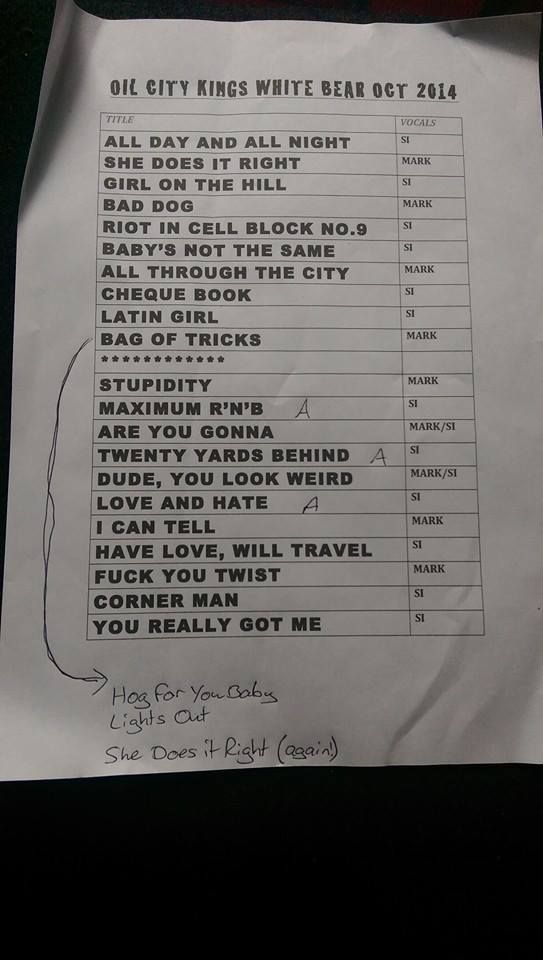 OIL CITY KINGS WHITE BEAR OCT 2014
TITLE VOCALS
ALL DAY AND ALL NIGHT SI
SHE DOES IT RIGHT MARK
GIRL ON THE HILL SI
BAD DOG MARK
RIOT IN CELL BLOCK NO.9 SI
BABY'S NOT THE SAME SI
ALL THROUGH THE CITY MARK
CHEQUE BOOK SI
LATIN GIRL SI
BAG OF TRICKS MARK
************
STUPIDITY MARK
MAXIMUM R'N'B A SI
ARE YOU GONNA MARK/SI
TWENTY YARDS BEHIND A SI
DUDE, YOU LOOK WEIRD MARK/SI
LOVE AND HATE A SI
I CAN TELL MARK
HAVE LOVE, WILL TRAVEL SI
FUCK YOU TWIST MARK
CORNER MAN SI
YOU REALLY GOT ME SI
Hog For You Baby
Lights Out
She Does it Right (again!)